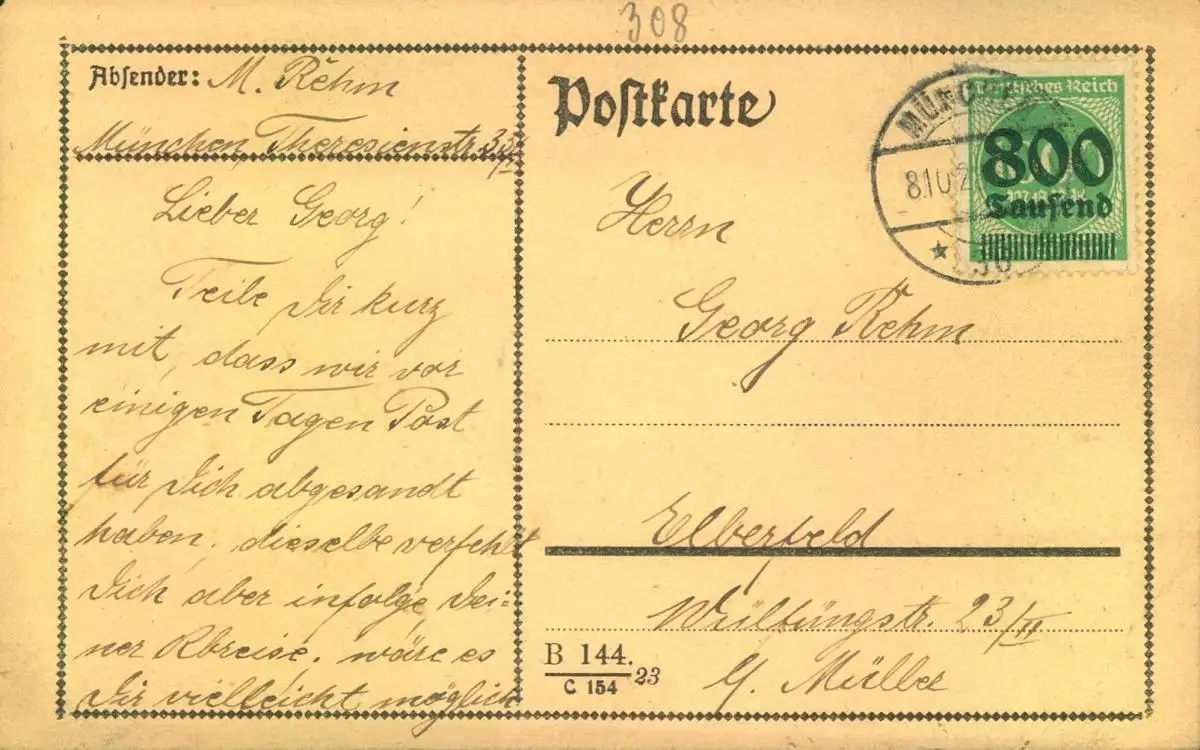 308
Absender: M. Rehm
München, Theresienstr. 33/II
Lieber Georg!
Teile Dir kurz
mit, dass wir vor
einigen Tagen Post
für Dich abgesandt
haben, dieselbe verfehlt
Dich aber infolge Dei-
ner Abreise. wäre es
Dir vielleicht möglich
Postkarte
MÜNC
8.10.2
Deutsches Reich
800
Tausend
Herrn
Georg Rehm
Elberfeld
Wülfingstr. 23/II
b/. Müller
B 144. 23
C 154